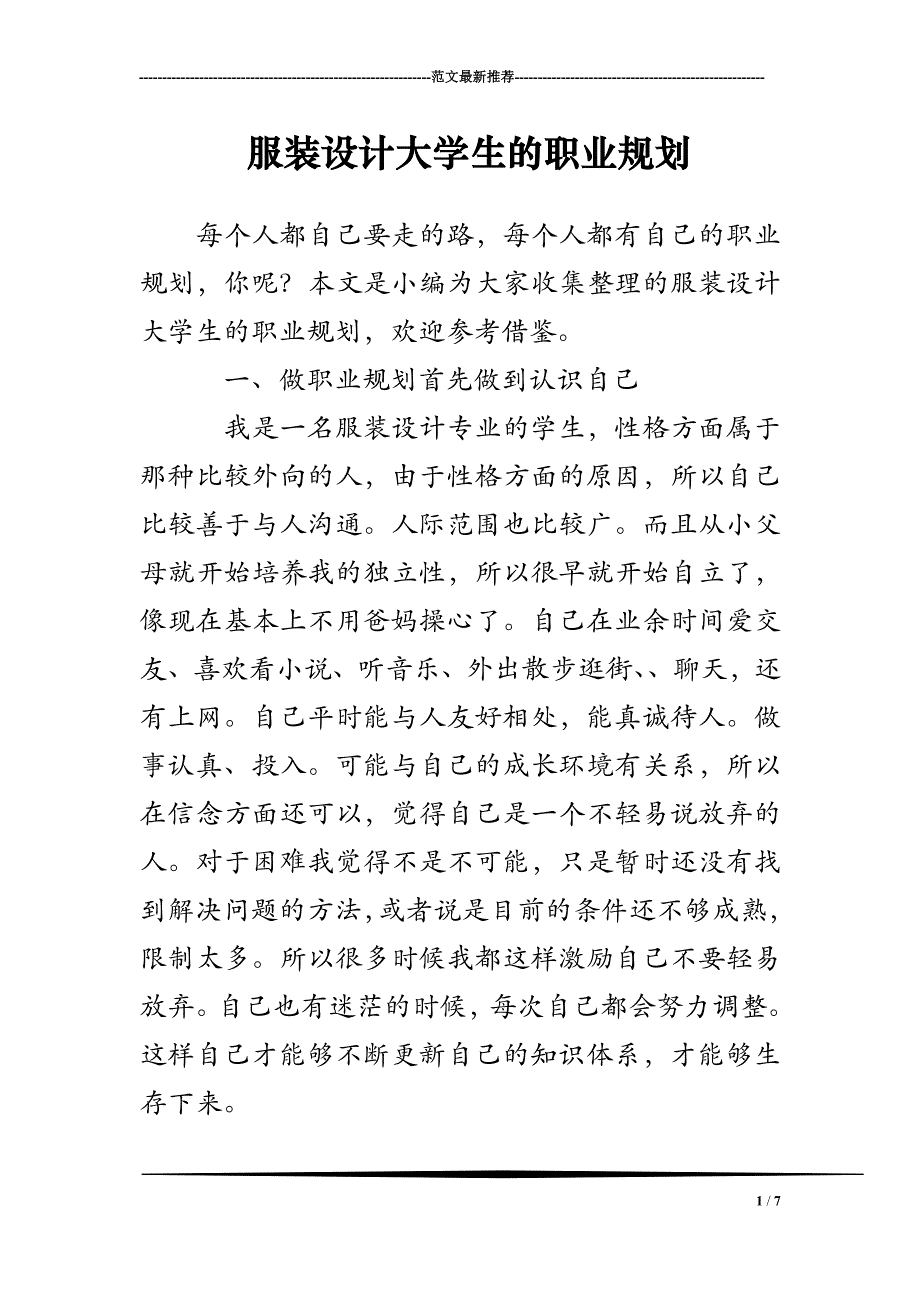 ---------------------------------------------------------------范文最新推荐------------------------------------------------------
服装设计大学生的职业规划
每个人都自己要走的路，每个人都有自己的职业
规划，你呢？本文是小编为大家收集整理的服装设计
大学生的职业规划，欢迎参考借鉴。
一、做职业规划首先做到认识自己
我是一名服装设计专业的学生，性格方面属于
那种比较外向的人，由于性格方面的原因，所以自己
比较善于与人沟通。人际范围也比较广。而且从小父
母就开始培养我的独立性，所以很早就开始自立了，
像现在基本上不用爸妈操心了。自己在业余时间爱交
友、喜欢看小说、听音乐、外出散步逛街、、聊天，还
有上网。自己平时能与人友好相处，能真诚待人。做
事认真、投入。可能与自己的成长环境有关系，所以
在信念方面还可以，觉得自己是一个不轻易说放弃的
人。对于困难我觉得不是不可能，只是暂时还没有找
到解决问题的方法，或者说是目前的条件还不够成熟，
限制太多。所以很多时候我都这样激励自己不要轻易
放弃。自己也有迷茫的时候，每次自己都会努力调整。
这样自己才能够不断更新自己的知识体系，才能够生
存下来。
1 / 7